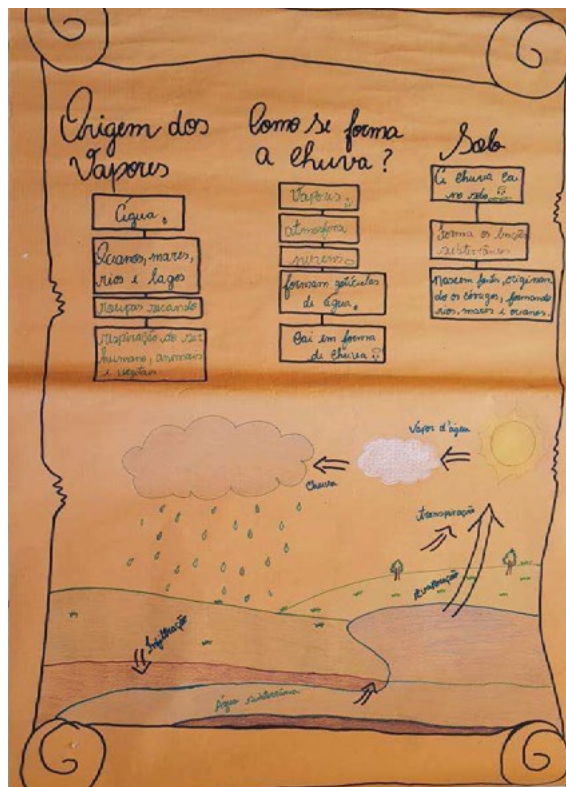 Origem dos
Vapores
Água.
Oceanos, mares,
rios e lagos
roupas secando
respiração do ser
humano, animais
e vegetais
Como se forma
a chuva?
Vapores
atmosfera
nuvens
formam gotículas
de água.
Cai em forma
de chuva
Solo
A chuva cai
no solo
forma os lençóis
subterrâneos
nascem fontes, originan
do os córregos, formando
rios, mares e oceanos.
Vapor d'água
Chuva
transpiração
evaporação
Infiltração
Água subterrânea